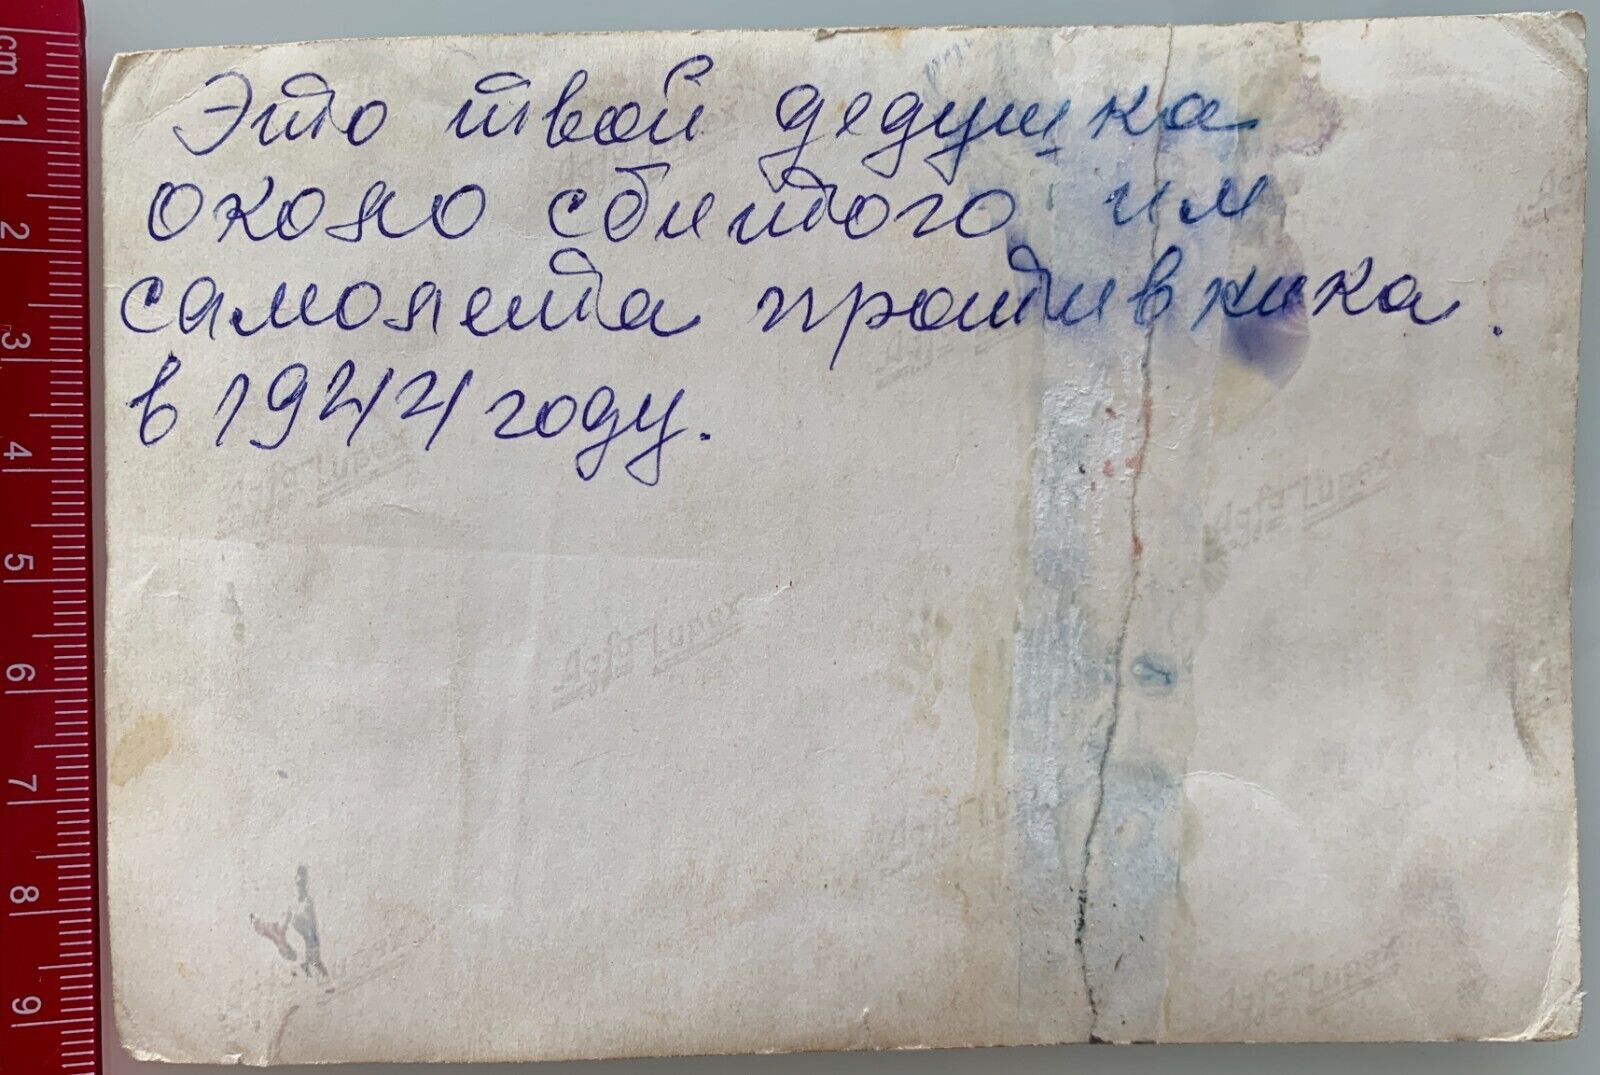 Это твой дедушка
около сбитого им
самолета противника.
в 1944 году.
Agfa Lupex
Agfa Lupex
Agfa Lupex
Agfa Lupex
cm
1
2
3
4
5
6
7
8
9